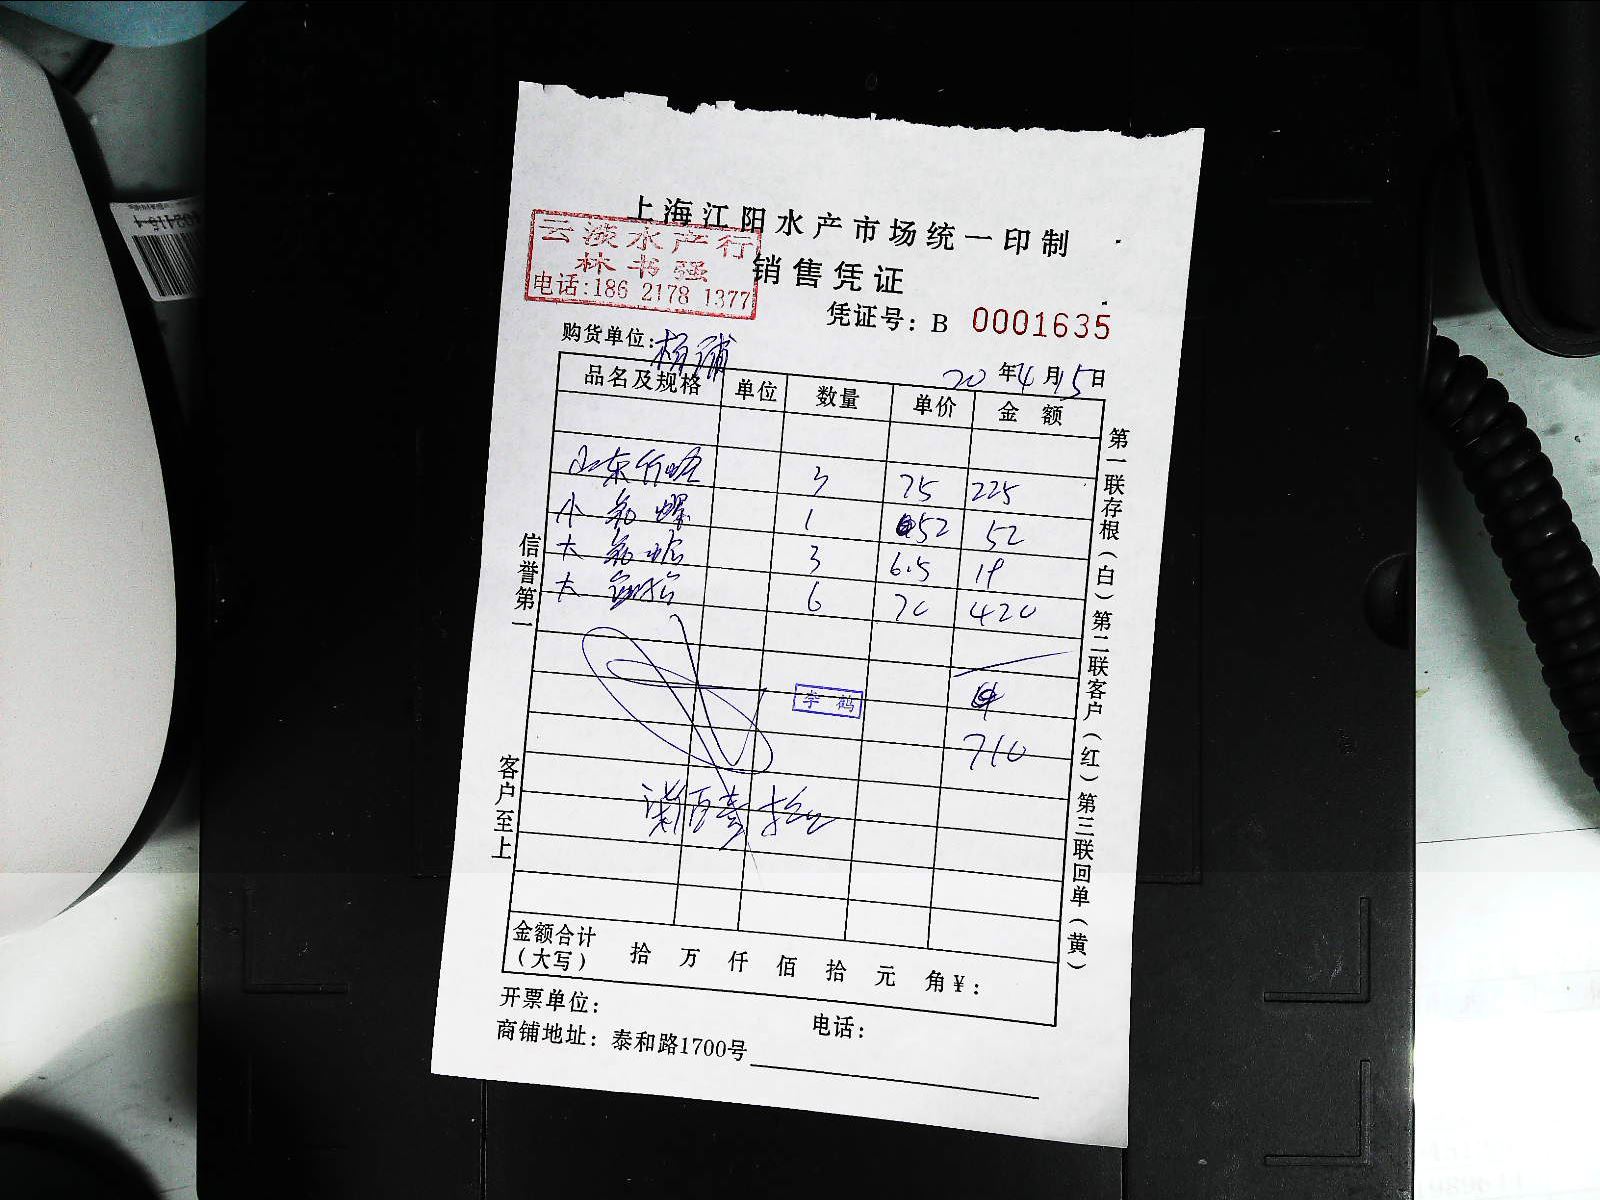 上海江阳水产市场统一印制
云淡水产行
林书强
电话:186 2178 1377
销售凭证
凭证号: B 0001635
购货单位:杨浦
20年4月15日
品名及规格 单位 数量 单价 金额
山东竹蛏 3 75 225
小 1 52 52
大 3 6.5 19
大 6 70 420
李鹤
710
金额合计(大写) 拾 万 仟 佰 拾 元 角¥:
开票单位: 电话:
商铺地址: 泰和路1700号
信誉第一 客户至上
第一联存根(白)第二联客户(红)第三联回单(黄)